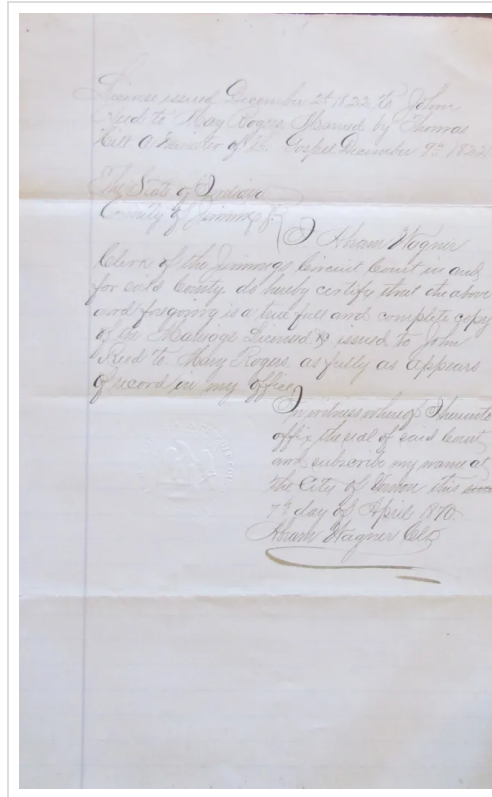 License issued December 2d 1822 to John
Reed to Mary Rogers Married by Thomas
Hill A Minister of the Gospel December 9th 1822
The State of Indiana
County of Jennings
I Abram Wagner
Clerk of the Jennings Circuit Court in and
for said County do hereby certify that the above
and foregoing is a true full and complete copy
of the Mariage Licensed issued to John
Reed to Mary Rogers as fully as appears
of record in my office
In witness where of I hereunto
affix the seal of said Court
and subscribe my name at
the City of Vernon this
7th day of April 1870.
Abram Wagner Clk